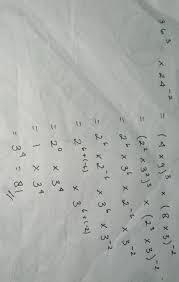 36³ × 24⁻²
= (4 × 9)³ × (8 × 3)⁻²
= (2² × 3²)³ × (2³ × 3)⁻²
= 2⁶ × 3⁶ × 2⁻⁶ × 3⁻²
= 2⁶ × 2⁻⁶ × 3⁶ × 3⁻²
= 2⁶⁺⁽⁻⁶⁾ × 3⁶⁺⁽⁻²⁾
= 2⁰ × 3⁴
= 1 × 3⁴
= 3⁴ = 81 //